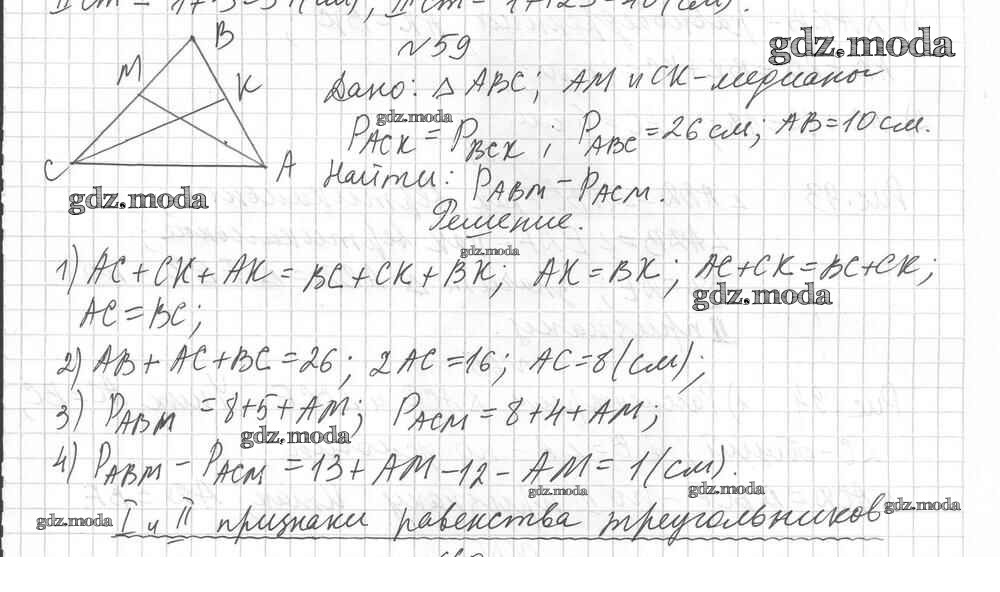 №59
B
M
K
C
A
gdz.moda
Дано: △ ABC; AM и CK - медианы
gdz.moda
P_ACK = P_BCK ; P_ABC = 26 см; AB = 10 см.
Найти: P_ABM - P_ACM.
gdz.moda
Решение.
gdz.moda
1) AC + CK + AK = BC + CK + BK; AK = BK; AC + CK = BC + CK;
gdz.moda
AC = BC;
2) AB + AC + BC = 26; 2AC = 16; AC = 8 (см);
3) P_ABM = 8 + 5 + AM; P_ACM = 8 + 4 + AM;
gdz.moda
4) P_ABM - P_ACM = 13 + AM - 12 - AM = 1 (см).
gdz.moda
gdz.moda
gdz.moda
I и II признаки равенства треугольников
gdz.moda